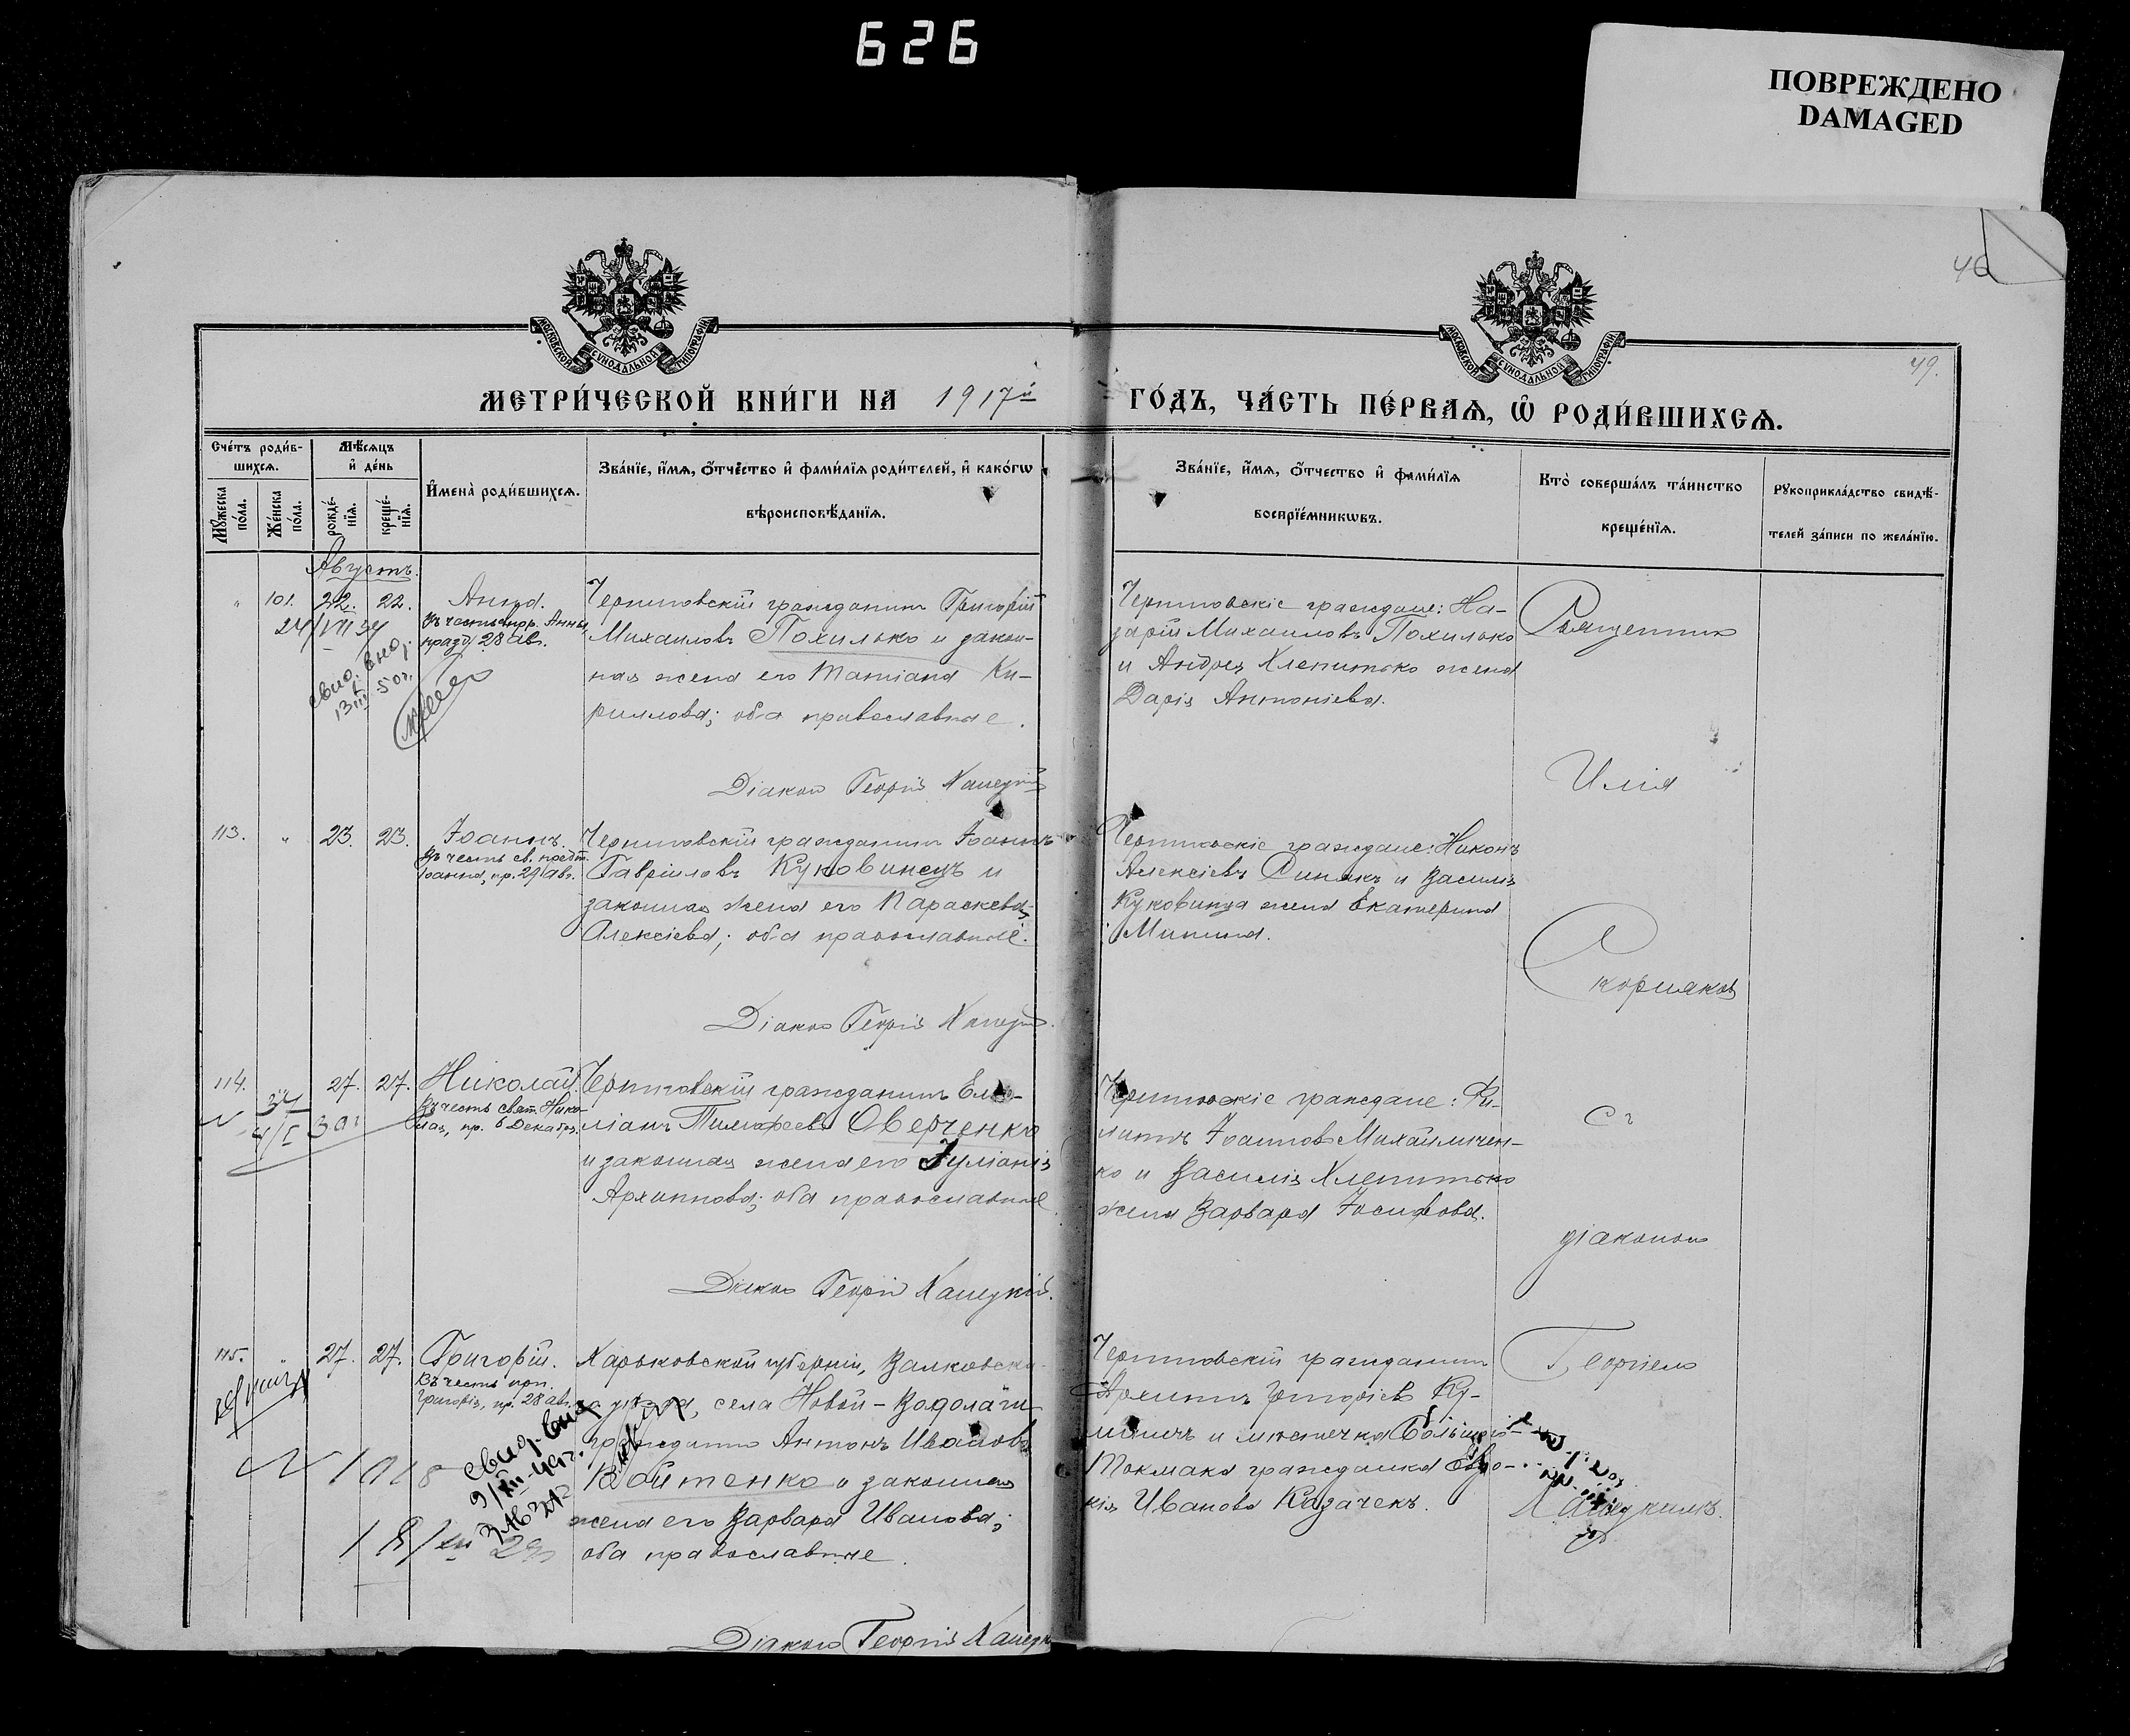 626
ПОВРЕЖДЕНО
DAMAGED
46
49.
МОСКОВСКОЙ СУНОДАЛЬНОЙ ТИПОГРАФІИ
МОСКОВСКОЙ СУНОДАЛЬНОЙ ТИПОГРАФІИ
МЕТРИ́ЧЕСКОЙ КНИ́ГИ НА 1917й ГО́ДЪ, ЧА́СТЬ ПЕ́РВАѦ, Ѡ҆ РОДИ́ВШИХСѦ.
Сче́тъ роди́в-
шихсѧ.
Мѣ́сѧцъ
и҆ де́нь
Мꙋ́жеска
по́ла.
Же́нска
по́ла.
рожде́-
нїѧ.
креще́-
нїѧ.
И҆мена̀ роди́вшихсѧ.
Зва́нїе, и҆́мѧ, ѻ҆́тчество и҆ фами́лїѧ роди́телей, и҆ како́гѡ
вѣроисповѣ́данїѧ.
Зва́нїе, и҆́мѧ, ѻ҆́тчество и҆ фами́лїѧ
воспрїе́мникѡвъ.
Кто̀ соверша́лъ та́инство
креще́нїѧ.
Рꙋкоприкла́дство свидѣ́-
телей за́писи по жела́нїю.
Августъ.
" 101. 22. 22. Анна.
Въ честь прр. Анны,
празд. 28 Ав.
24/VII 34
Черниговскій гражданинъ Григорій
Михаиловъ Похилько и закон-
ная жена его Татіана Ки-
риллова; оба православные.
Діаконъ Георгій Капецкій
Черниговскіе граждане: На-
зарій Михаиловъ Похилько
и Андрея Клепитько жена
Дарія Антоніева.
Священникъ
Илія
113. " 23. 23. Іоаннъ.
Въ честь св. предт.
Іоанна, пр. 29 Авг.
Черниговскій гражданинъ Іоаннъ
Гавріиловъ Куковинецъ и
законная жена его Параскева
Алексіева; оба православные.
Діаконъ Георгій Капецкій.
Черниговскіе граждане: Никонъ
Алексіевъ Синякъ и Василія
Куковинца жена Екатерина
Минина.
Скориковъ
114. 27. 27. Николай.
Въ честь свят. Нико-
лая, пр. 6 Декабря.
Черниговскій гражданинъ Еми-
ліанъ Тимофеевъ Оверченко
и законная жена его Іуліанія
Архиппова; оба православные.
Діаконъ Георгій Капецкій.
Черниговскіе граждане: Фи-
липпъ Іоанновъ Михайличен-
ко и Василія Клепитько
жена Варвара Іосифова.
съ
діакономъ
115. " 27. 27. Григорій.
Въ честь прп.
Григорія, пр. 28 авг.
Харьковской губерніи, Валковска-
го уѣзда, села Новой-Водолаги
гражданинъ Антонъ Ивановъ
Войтенко и законная
жена его Варвара Иванова;
оба православные.
Діаконъ Георгій Капецкій
Черниговскій гражданинъ
Архиппъ Григоріевъ Ку-
и мѣстечка Большого-
Токмака гражданка Евдо-
кія Иванова Казачекъ.
Георгіемъ
Капецкимъ.